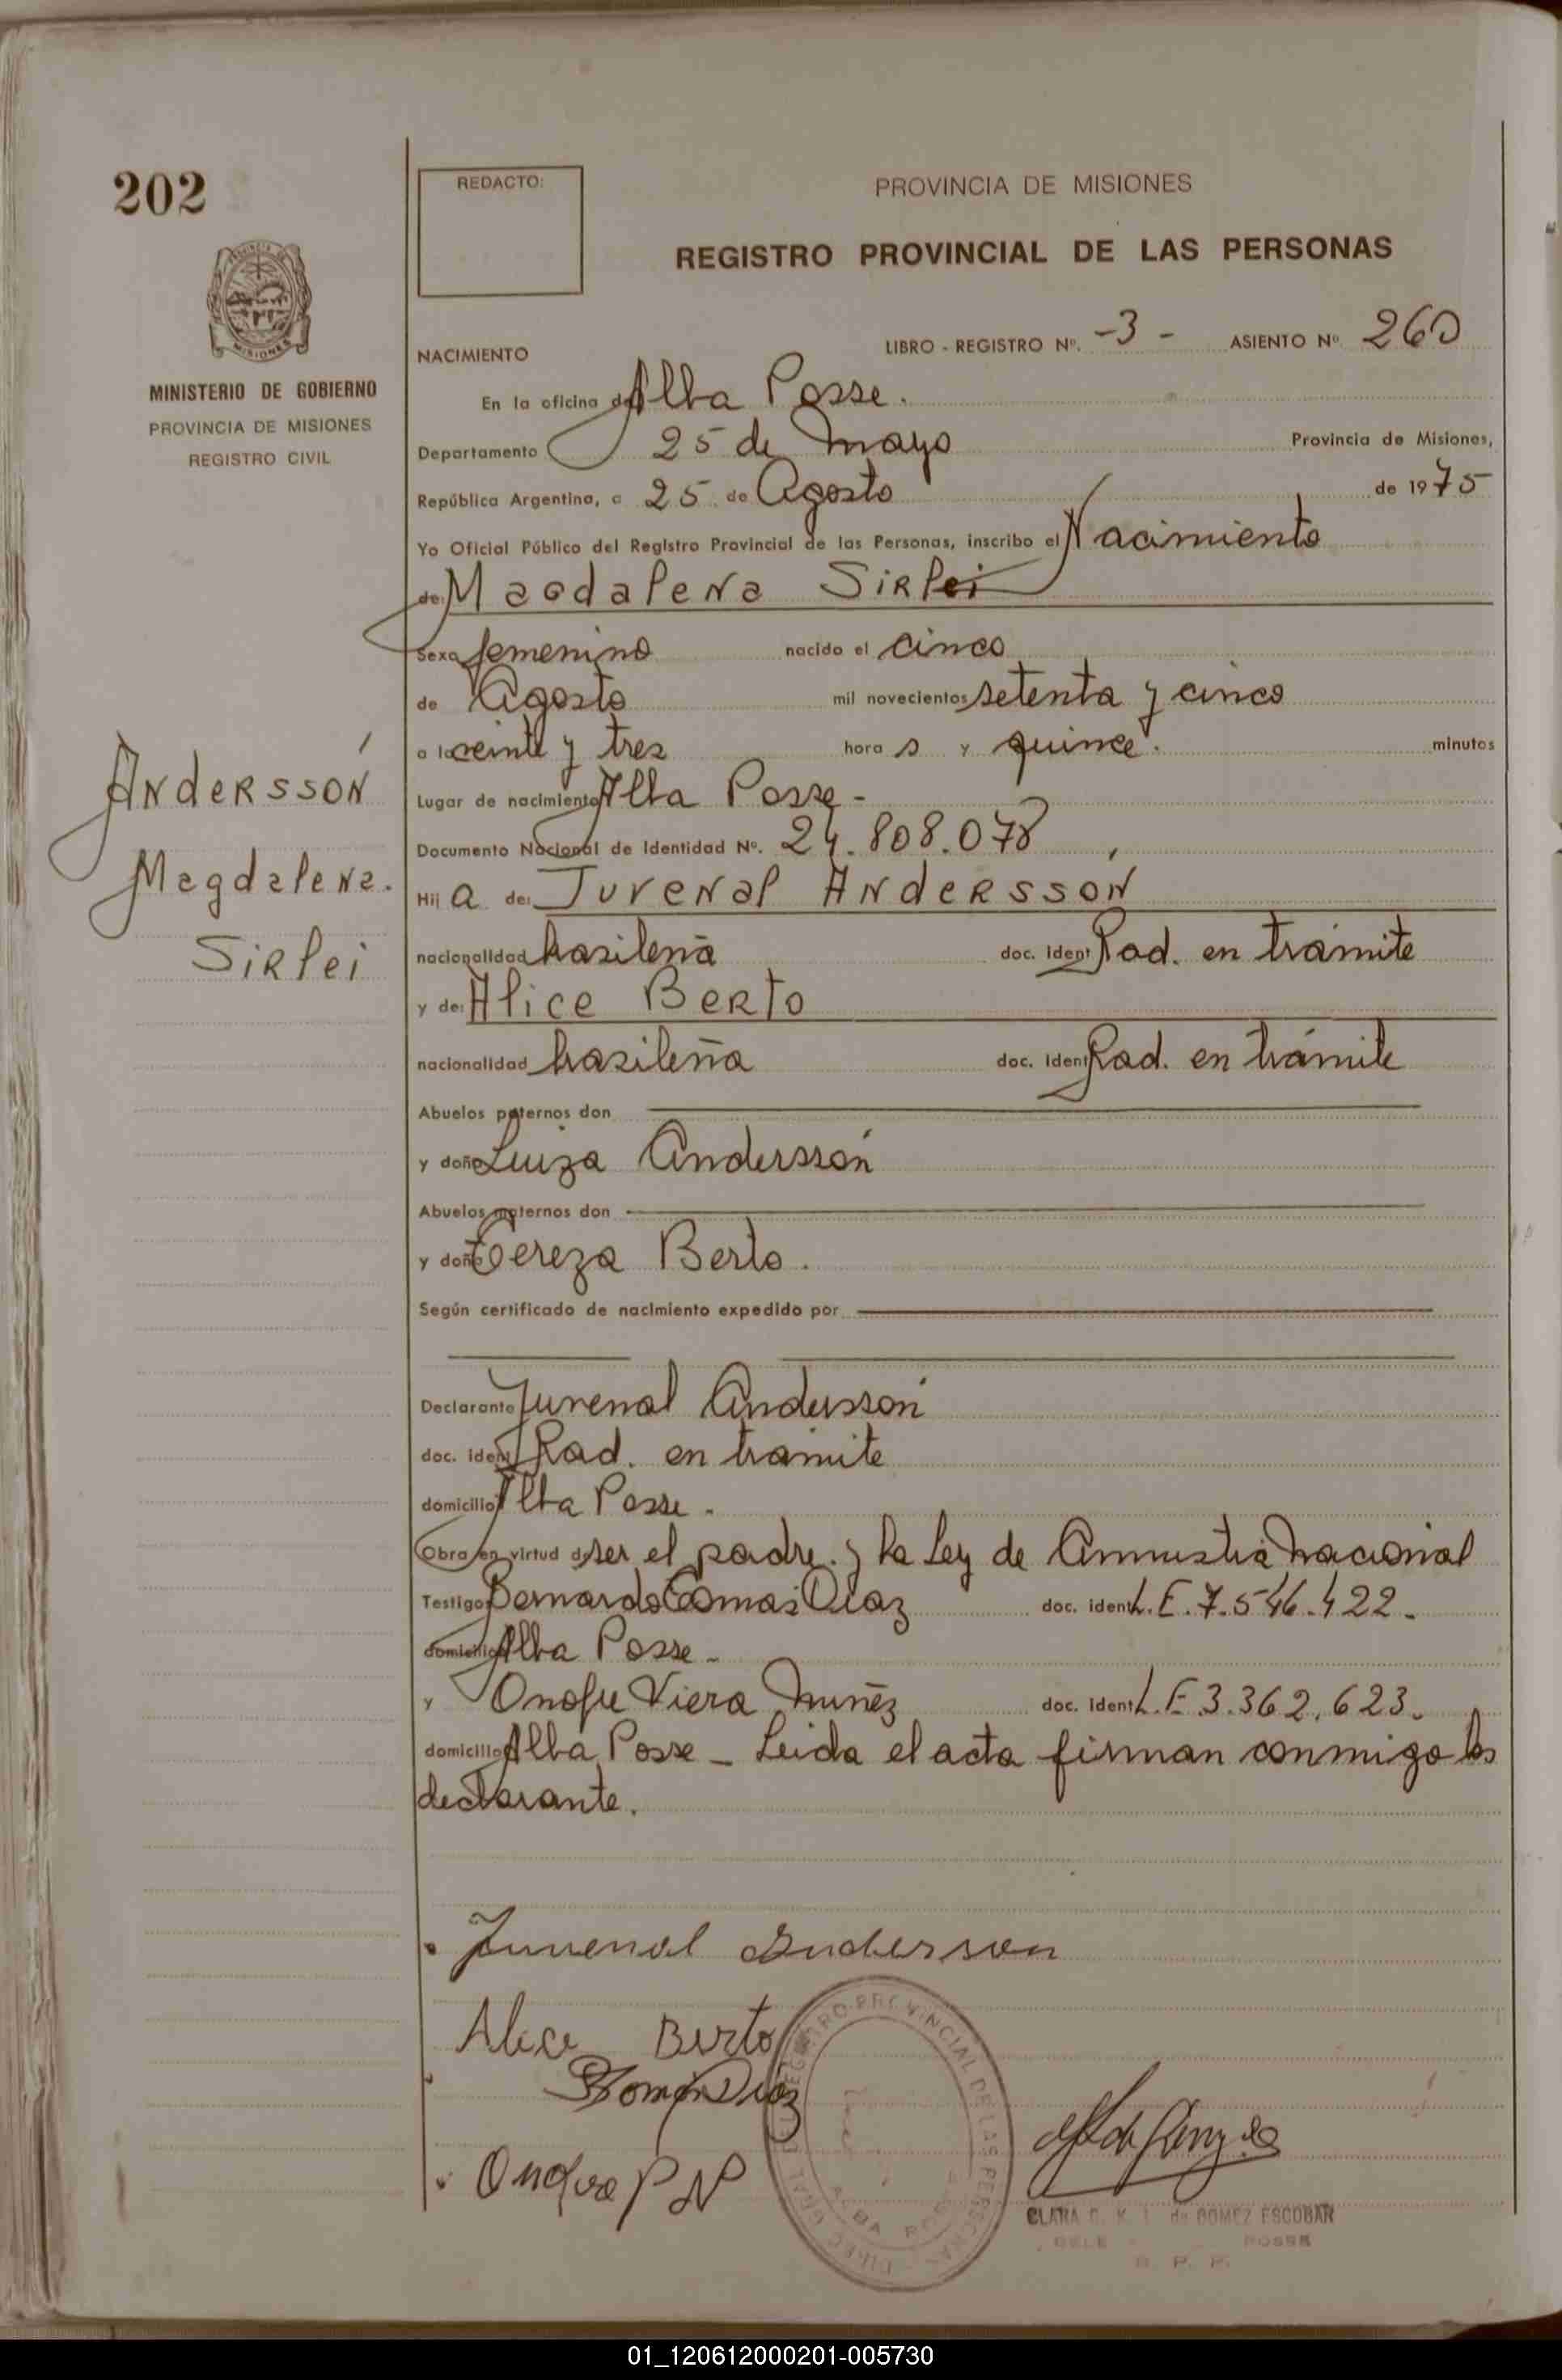 202
REDACTO:
PROVINCIA DE MISIONES
REGISTRO PROVINCIAL DE LAS PERSONAS
MINISTERIO DE GOBIERNO
PROVINCIA DE MISIONES
REGISTRO CIVIL
NACIMIENTO LIBRO - REGISTRO Nº. -3- ASIENTO Nº 260
En la oficina de Alba Posse.
Departamento 25 de Mayo Provincia de Misiones,
República Argentina, a 25 de Agosto de 1975
Yo Oficial Público del Registro Provincial de las Personas, inscribo el Nacimiento
de: Magdalena Sirlei
Sexo femenino nacido el cinco
de Agosto mil novecientos setenta y cinco
a la veinte y tres hora s y quince. minutos
Anderssón
Magdalena.
Sirlei
Lugar de nacimiento Alba Posse-
Documento Nacional de Identidad Nº. 24.808.078
Hij a de: Juvenal Andersson
nacionalidad brasileña doc. ident Rad. en trámite
y de: Alice Berto
nacionalidad brasileña doc. ident Rad. en trámite
Abuelos paternos don
y doña Luiza Anderssón
Abuelos maternos don
y doña Tereza Berto.
Según certificado de nacimiento expedido por
Declarante Juvenal Anderssón
doc. ident Rad. en tramite
domicilio Alba Posse.
Obra en virtud de ser el padre. y la Ley de Amnistia Nacional
Testigos Bernardo Tomas Diaz doc. ident L.E. 7.546.422.
domicilio Alba Posse-
y Onofre Viera Nuñez doc. ident L.E 3.362.623.
domicilio Alba Posse - Leida el acta firman conmigo los
declarante.
Juvenal Anderson
Alice Berto
Onofre
REGISTRO PROVINCIAL DE LAS PERSONAS
ALBA POSSE
CLARA de GOMEZ ESCOBAR
POSSE
R. P. P.
01_120612000201-005730